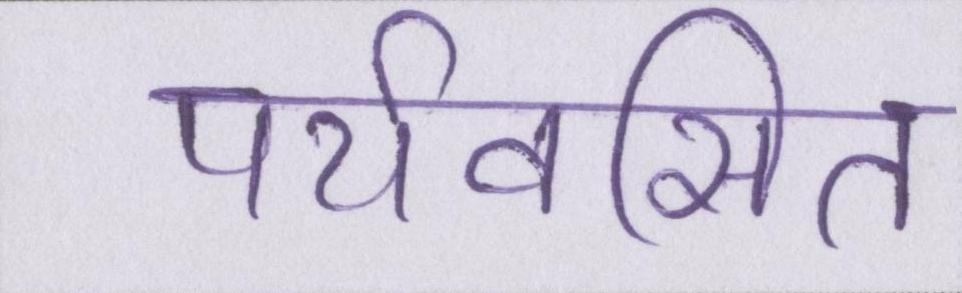 पर्यवसित